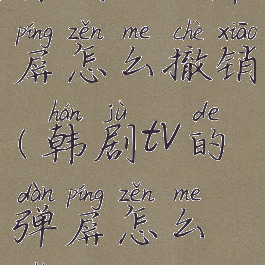 píng zěn me chè xiāo
屏怎么撤销
hán jù de
(韩剧tv的
dàn píng zěn me
弹屏怎么